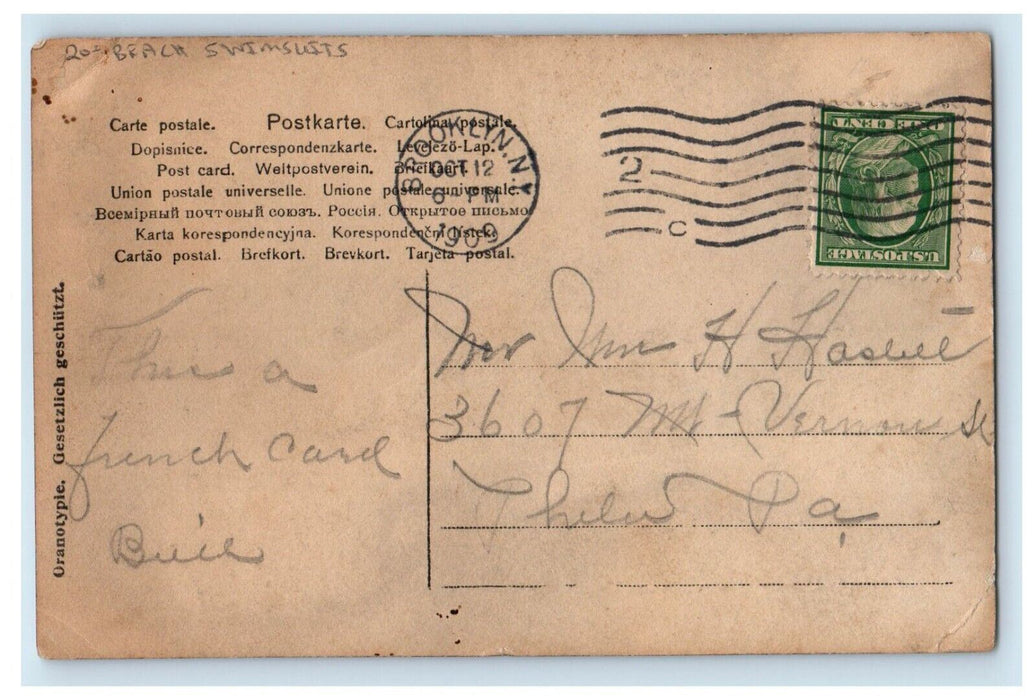 20- BEACH SWIMSUITS
Carte postale. Postkarte. Cartolina postale.
Dopisnice. Correspondenzkarte. Levelező-Lap.
Post card. Weltpostverein. Briefkaart.
Union postale universelle. Unione postale universale.
Всемірный почтовый союзъ. Россія. Открытое письмо
Karta korespondencyjna. Korespondenční lístek.
Cartão postal. Brefkort. Brevkort. Tarjeta postal.
BROOKLYN. N.Y.
OCT 12
6- PM
1909
2
C
U.S. POSTAGE
Oranotypie. Gesetzlich geschützt.
This a
french Card
Bill
Mr Wm H
3607 Mt Vernon St
Phila Pa